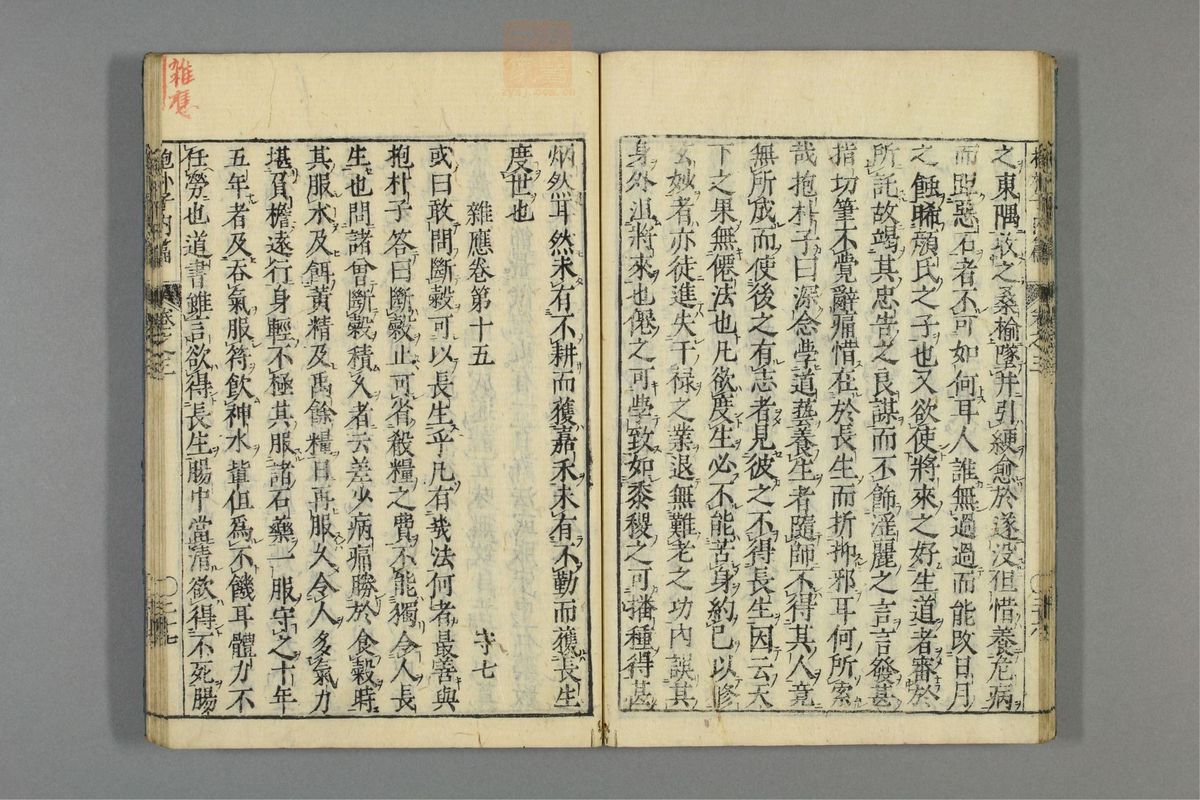 之東隅攺之桑榆墜井引綆愈於遂没但惜養疪病
而距惡石者不可如何耳人誰無過過而能攺日月
之蝕睎顔氏之子也又欲使將來之好生道者審於
所託故竭其忠告之良謀而不飾淫麗之言言發甚
指切筆不覺辭痛惜在於長生而折抑邪耳何所索
哉抱朴子曰深念學道藝養生者隨師不得其人竟
無所成而使後之有志者見彼之不得長生因云天
下之果無僊法也凡欲度生必不能苦身約己以修
玄妙者亦徒進失干禄之業退無難老之功内誤其
身外沮將來也僊之可學致如黍稷之可播種得甚
炳然耳然未有不耕而獲嘉禾未有不勤而獲長生
度世也
雜應卷第十五 守七
或曰敢問斷穀可以長生乎凡有㡬法何者最善與
抱朴子答曰斷穀止可省殺糧之費不能獨令人長
生也問諸曾斷穀積久者云差少病痛勝於食穀時
其服水及餌黄精及禹餘糧日再服久令人多氣力
堪負檐遠行身輕不極其服諸石藥一服守之十年
五年者及吞氣服符飲神水軰但爲不饑耳體力不
任勞也道書雖言欲得長生腸中當清欲得不死腸
抱朴子内篇 卷之三 〇二十七
雜應